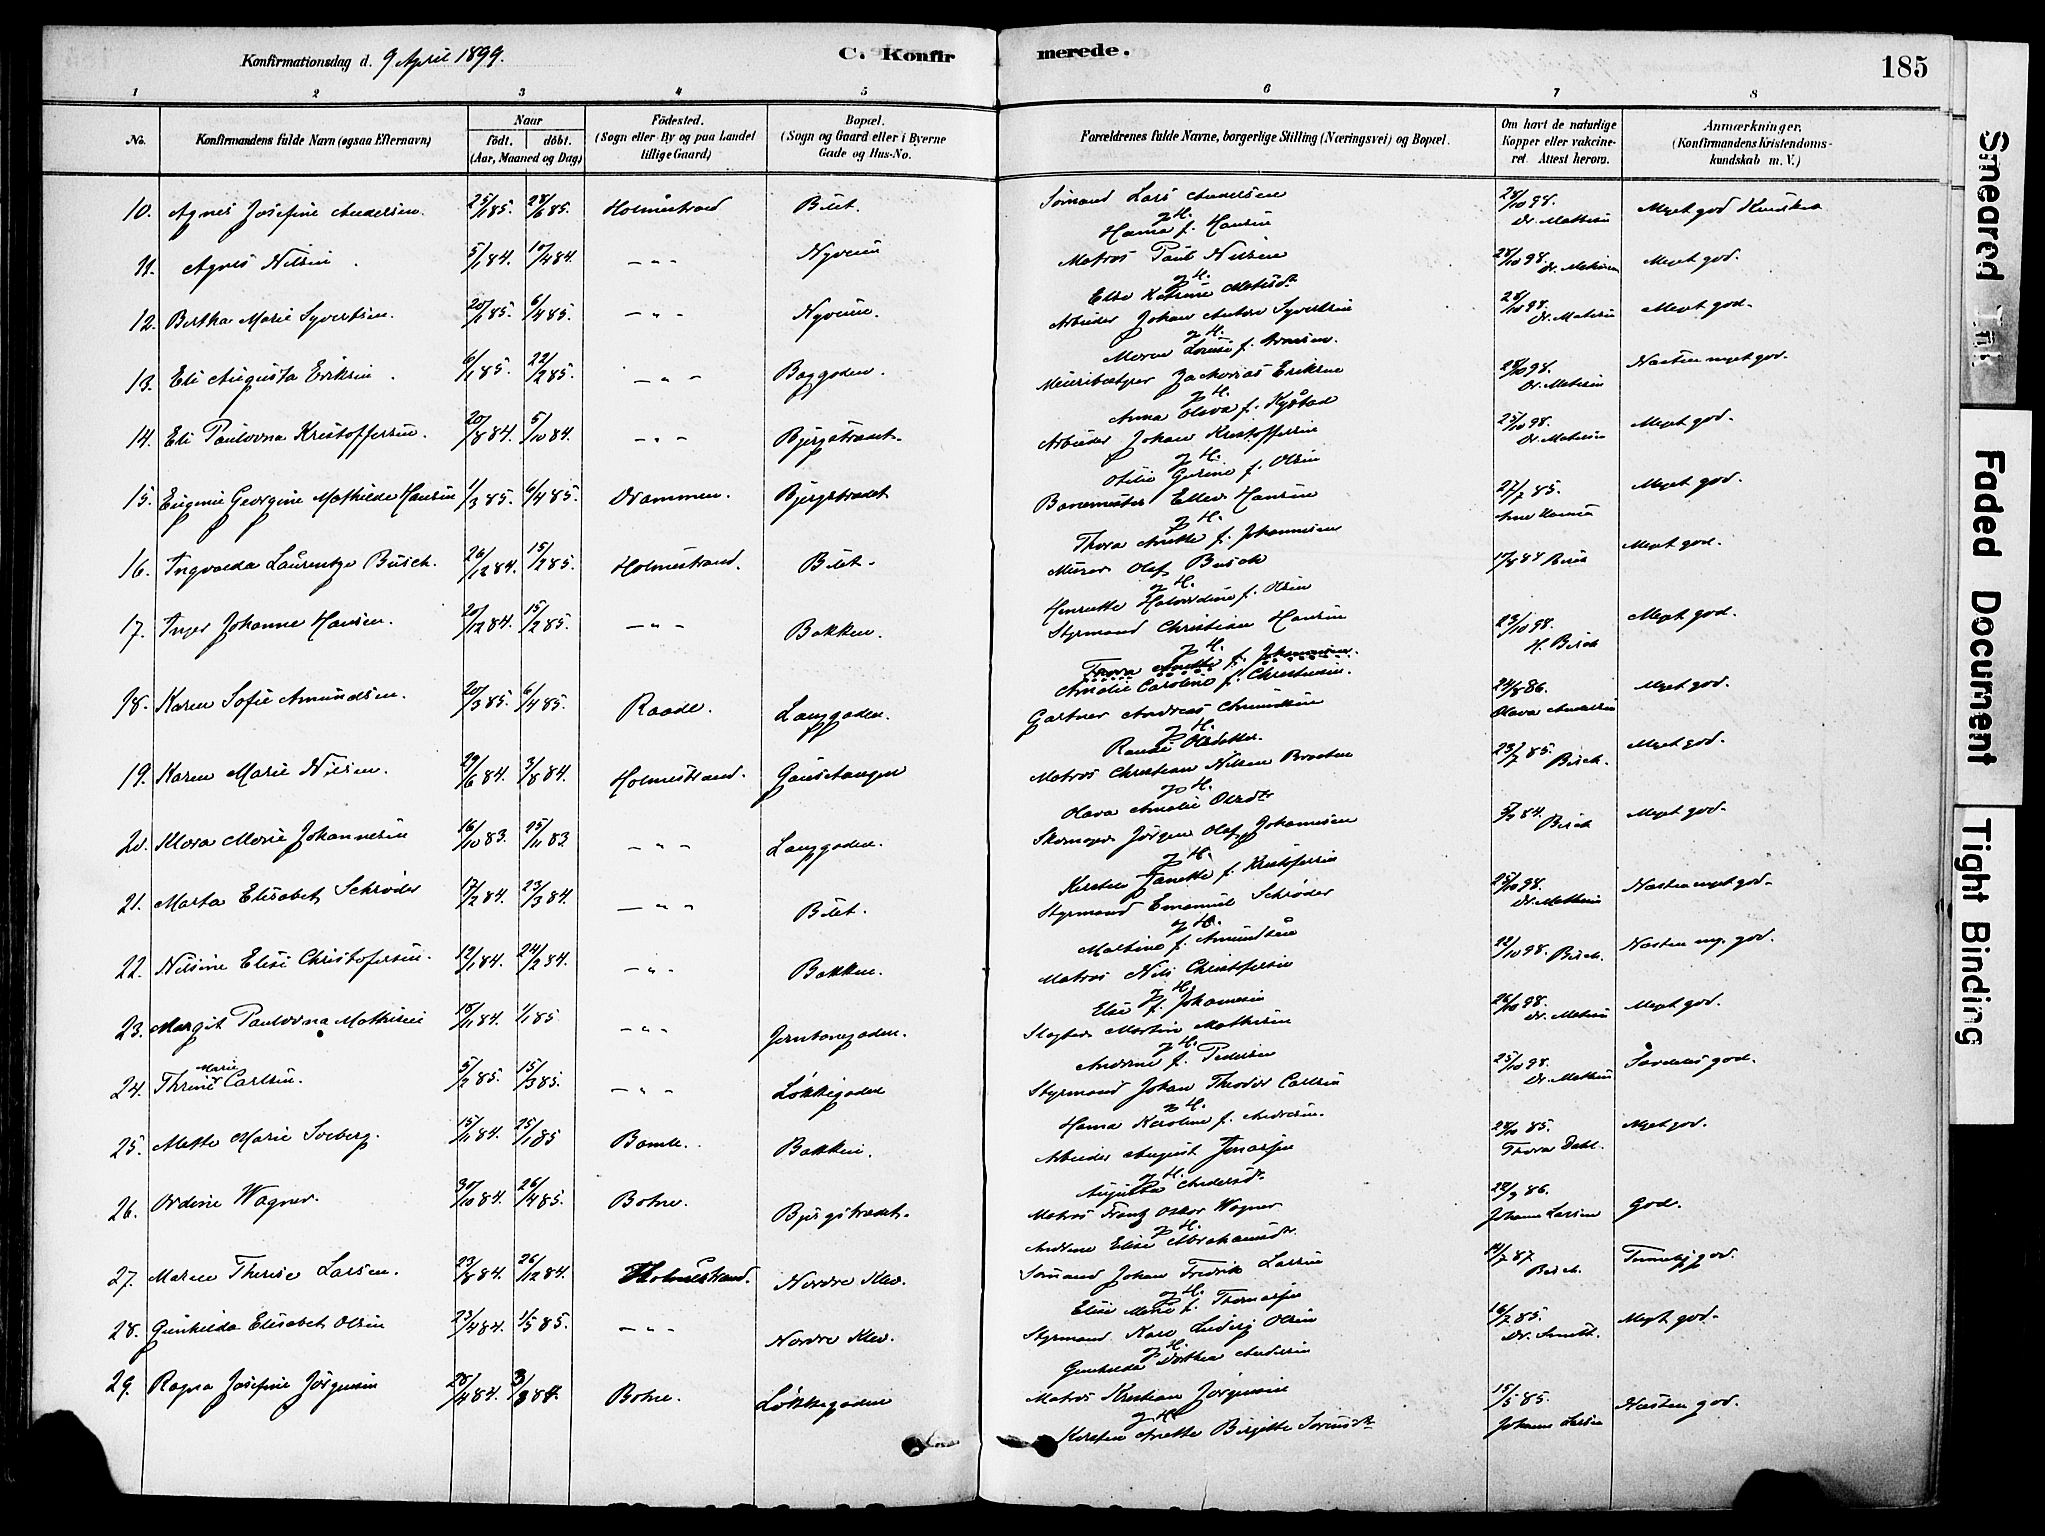 Konfirmationsdag d. 9 April 1899.
C. Konfirmerede.
185
1 2 3 4 5 6 7 8
No. Konfirmandens fulde Navn (ogsaa Efternavn) Naar født. døbt. (Aar, Maaned og Dag) Fødested. (Sogn eller By og paa Landet tillige Gaard) Bopæl. (Sogn og Gaard eller i Byerne Gade og Hus-No. Forældrenes fulde Navne, borgerlige Stilling (Næringsvei) og Bopæl. Om havt de naturlige Kopper eller vakcineret. Attest herom. Anmærkninger. (Konfirmandens Kristendomskundskab m. V.)
10. Agnes Josefine Andersen. 25/1 85. 28/6 85. Holmestrand Bilet. Sømand Lars Andersen 28/10 98. Meget god Kundskab
g. H. Dr. Mathisen
Hanna f. Hansen
11. Agnes Nilsen 5/1 84. 10/4 84. – " – Nyveien Matros Paul Nilsen 28/10 98. Dr. Mathisen Meget god.
g. H.
Else Katrine
12. Bertha Marie Syvertsen. 20/1 85. 6/4 85. – " – Nyveien. Arbeider Johan Anton Syvertsen 28/10 98. Meget god.
g. H. Dr. Mathisen
Maren Lovise f.
13. Eli Augusta Eriksen. 6/1 85. 22/2 85. – " – Baggaden. Zacharias Eriksen 28/10 98. Næsten meget god.
g. H. Dr. Mathisen
Anna Olava f.
14. Eli Paulovna Kristoffersen. 20/8 84. 5/10 84. – " – Bjergstrædet. Arbeider Johan Kristoffersen 25/10 98. Meget god.
g. H. Dr. Mathisen
Otilie Gurine f. Olsen
15. Eugenie Georgine Mathilde Hansen 1/3 85. 6/4 85. Drammen. Bjergstrædet Banemester Ellev Hansen 27/7 85. Meget god.
g. H.
Thora Anette f. Johannesen
16. Ingvalda Laurentze Busch. 26/12 84. 15/2 85. Holmestrand. Bilet. Murer Olaf Busch Meget god.
g. H.
Henriette Halvordine f. Olsen
17. Inger Johanne Hansen. 20/12 84. 15/2 85. – " – Bakken. Styrmand Christian Hansen 23/10 98. Meget god.
g. H. H. Busch
Thora Anette f. Johannesen.
Amalie Caroline f. Christensen.
18. Karen Sofie Amundsen. 20/3 85. 6/4 85. Raade. Langgaden. Gartner Andreas Amundsen 24/8 86. Meget god.
g. H. Olava Andersen
Randi Olsdatter.
19. Karen Marie Nilsen. 29/6 84. 3/8 84. Holmestrand. Gaustangen Matros Christian Nilsen Braaten 23/7 85. Busch. Meget god.
g. H.
Olava Amalie Olsdtr
20. Klara Marie Johannesen 16/10 83. 25/11 83 – " – Langgaden. Skomager Jørgen Olaf Johannesen Busch Meget god.
g. H.
Kirsten Janette f. Kristofersen
21. Marta Elisabet Schrøder 17/2 84. 23/3 84. – " – Bilet. Styrmand Emanuel Schrøder 25/10 98. Næsten meget god.
g. H. Dr. Mathisen
Martine f. Amundsen
22. Nilsine Elise Christofersen. 12/1 84. 24/2 84. – " – Bakken. Matros Nils Christofersen 22/10 98. Busch. Næsten meg. god.
g. H.
Else f. Johannesen
23. Margit Paulovna Mathisen 15/11 84. 1/1 85 – " – Jernbanegaden. Slagter Martin Mathisen 26/10 98. Meget god.
g. H. Dr. Mathisen
Andrine f. Pedersen
24. Thrine Marie Carlsen. 5/2 85. 15/3 85. – " – Løkkegaden Styrmand Johan Theodor Carlsen 25/10 98. Særdeles god.
g. H. Dr. Mathisen
Hanna Karoline f. Andersen.
25. Mette Marie Solberg. 15/11 84. 25/1 85 Bamle. Bakken. Arbeider August Jonassen 28/10 85. Meget god.
g. H. Thora Dahl.
Augusta Andersdtr.
26. Ordine Wagner. 30/10 84. 26/4 85. Botne. Bjergstrædet. Matros Frantz Oskar Wagner 22/9 86. God.
g. H. Johanne Larsen
Andrine Elise Abrahamsdtr.
27. Maren Therese Larsen. 23/8 84. 26/12 84. Holmestrand. Nordre Klev. Sømand Johan Fredrik Larsen 14/7 87 Temmelig god.
g. H. Busch.
Elise Marie f. Thomassen
28. Gunhilda Elisabet Olsen 23/4 84. 1/5 85. – " – Nordre Klev. Styrmand Karl Ludvig Olsen 16/7 85. Meget god.
g. H. Dr. Smith.
Gunhilda Dorthea Andersen
29. Ragna Josefine Jørgensen 28/4 84. 3/8 84. Botne. Løkkegaden Matros Kristian Jørgensen 15/5 85. Næsten god.
g. H. Johanne Larsen
Kirsten Anette Birgitte Sørensdtr
Smeared Ink
Faded Document
Tight Binding